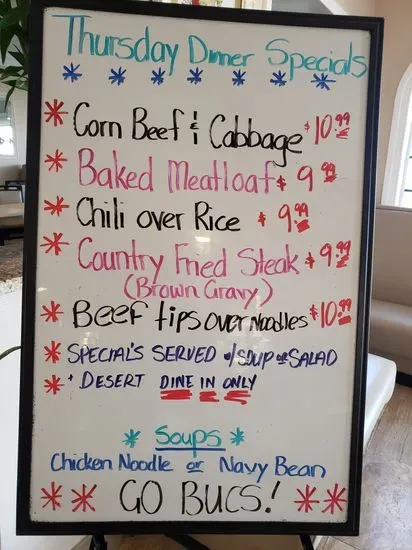 Thursday Dinner Specials
* Corn Beef & Cabbage $10.99
* Baked Meatloaf $9.99
* Chili over Rice $9.99
* Country Fried Steak $9.99
(Brown Gravy)
* Beef tips over Noodles $10.99
* SPECIAL'S SERVED w/ SOUP or SALAD
* + DESERT DINE IN ONLY
* Soups *
Chicken Noodle or Navy Bean
** GO BUCS! **